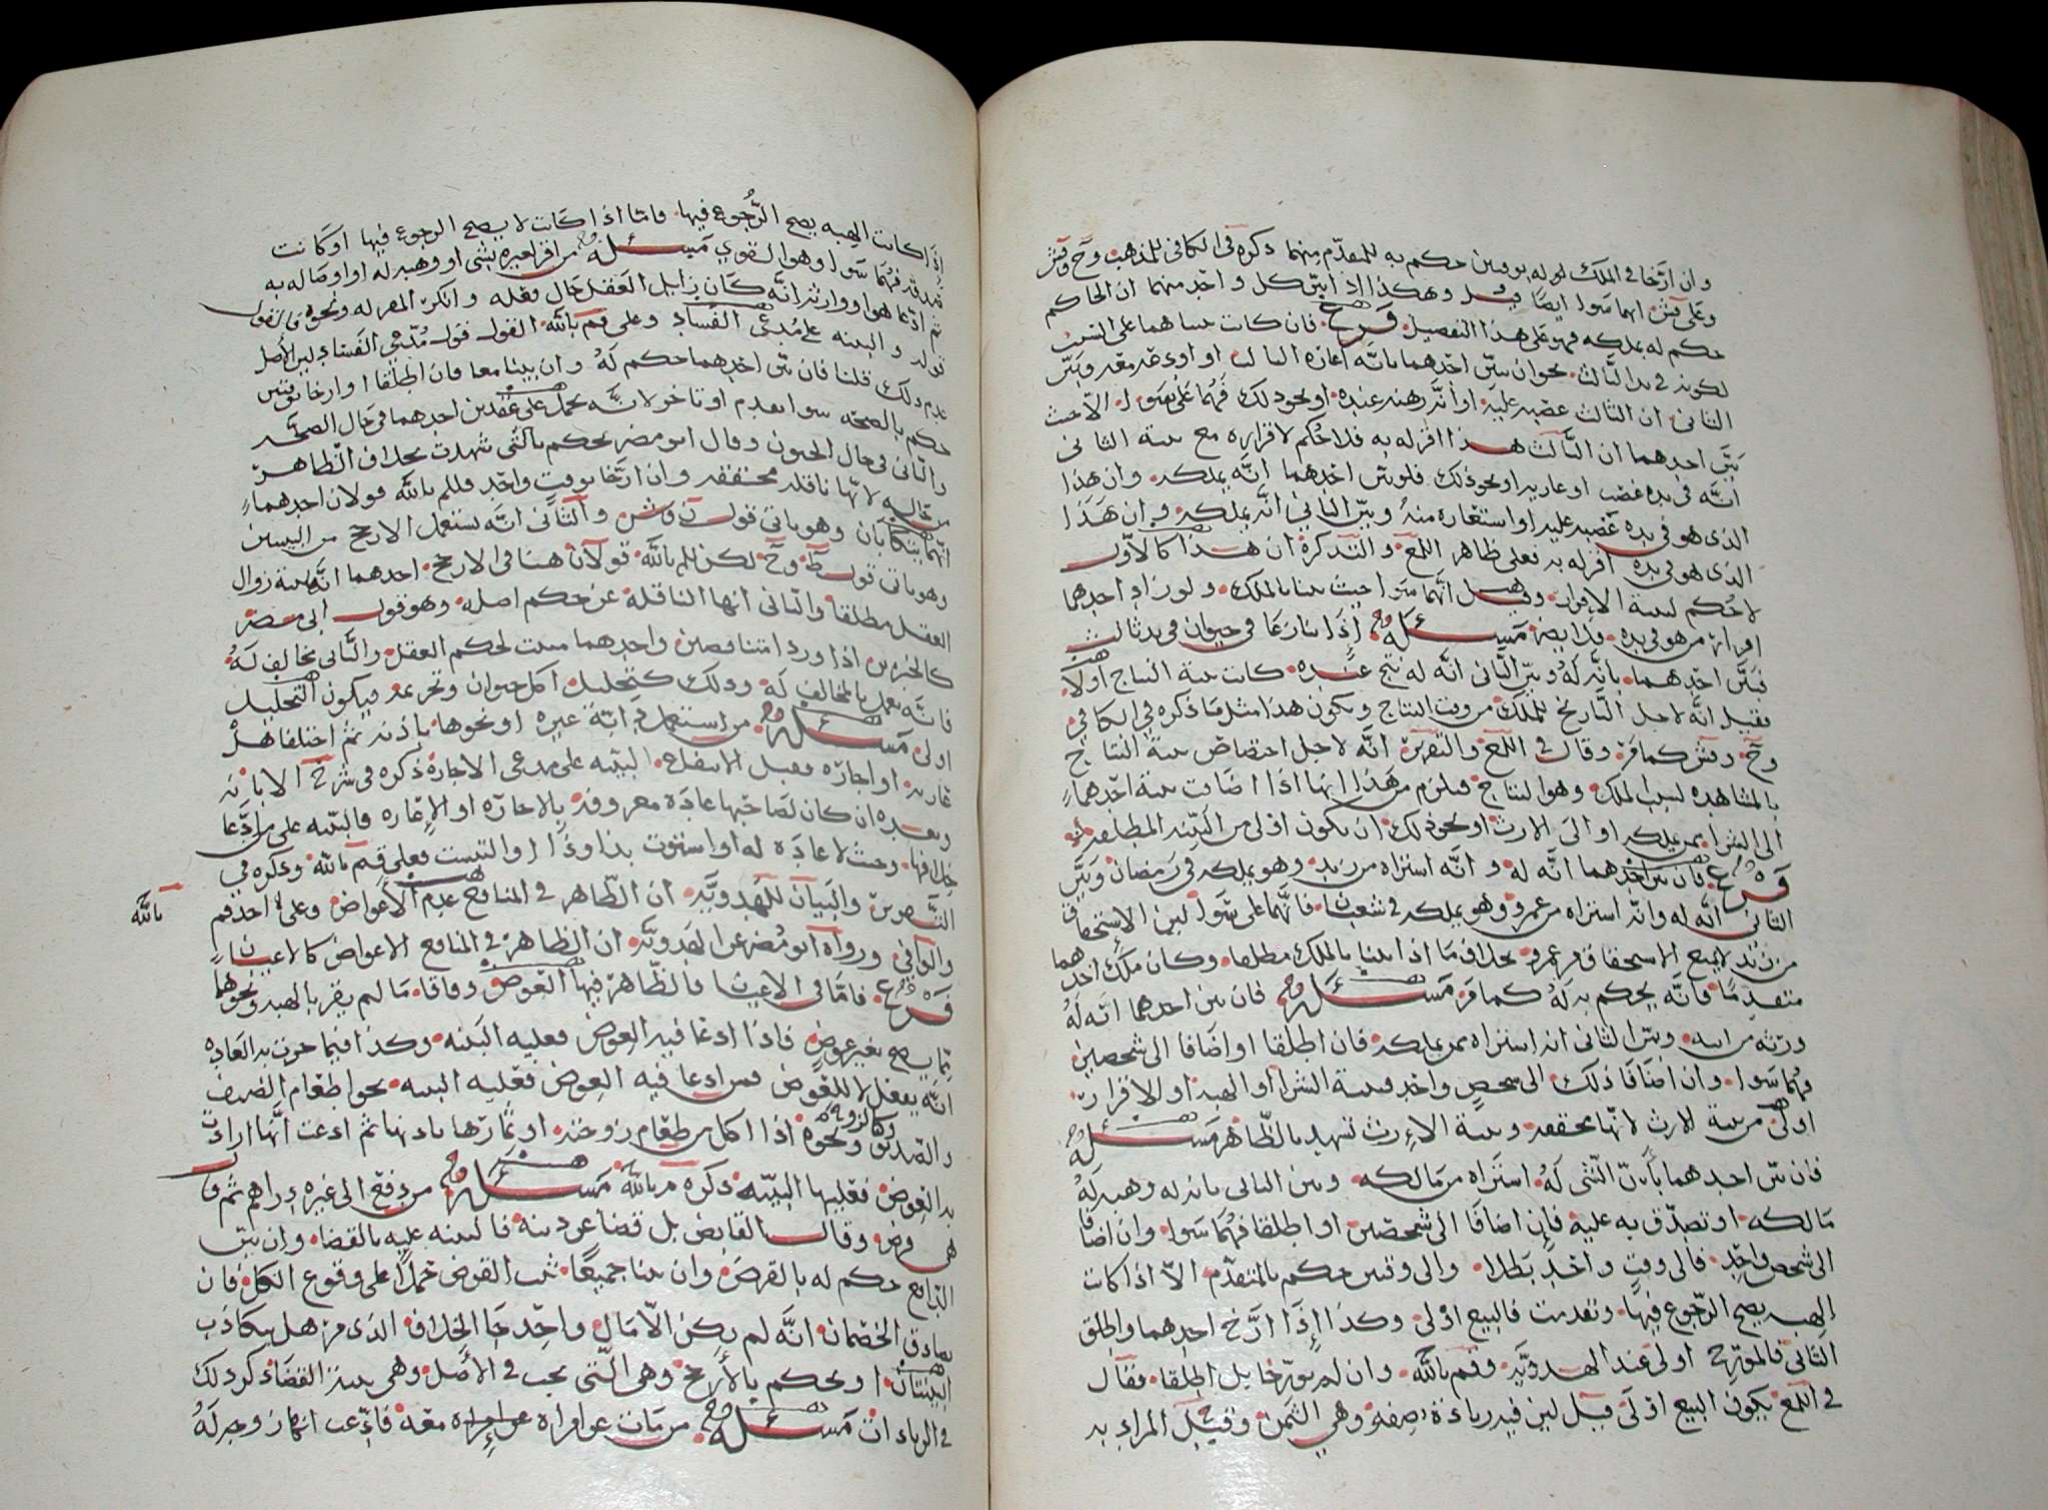 وان ارّخا في الملك له بوقتين حكم به للمتقدّم منهما ذكره في الكافي للمذهب وح وقش
وعلى قش انهما سَوا ايضًا وهكذا اذا بيّن كل واحد منهما ان الحاكم
حكم له بملكه فهو على هذا التفصيل فرع فان كانت بينتاهما على السبب
لكونه في يد الثالث نحو ان يبيّن احدهما بانّه اعاره الثالث او اودعه معه وبيّن
الثاني ان الثالث غصبه عليه او أنّه رهنه عنده او نحو ذلك فهُما على سوا الا حيث
بَيّن احدهما ان الثَّالث هذا اقرّ له به فلا حُكم لاقراره مع بينة الثاني
انّه في يده غصب او عارية او نحو ذلك فلو بيّن احدهما انّه يملكه وان هذا
الذي هو في يده غصبه عليه او استعاره منهُ وبيّن الثاني انّه يملكه وان هَذا
الذي هو في يده اقرّ له به فعلى ظاهر اللمع والتذكرة ان هذا كالاوّل
لا حُكم لبينة الاقرار وقيل انّهما سَوا حيث بينا بالملك ولو زاد احدهما
اقرار من هو في يده به ايضا مسئلة اذا تنازعَا في حيوان في يد ثالث
فبيّن احدهما بانّه لَهُ وبيّن الثاني انّه له نتج عنده كانت بينة النتاج اولا
فقيل انّه لاجل التَّاريخ للملك من وقت النتاج ويكون هذا مثل مَا ذكره في الكافي
وح وقش كما مرّ وقال في اللمع والتقرير انّه لاجل اختصاص بينة النتاج
بالمشاهده لسبب الملك وهو النتاج فيلزم من هَذا انها اذا اضافت بينة احدهما
الى الشرا ممن يملكه او الى الارث او نحو ذلك ان يكون اولى من البيّنه المطلقه
فرع فان بيّن احدهما انّه له وانّه اشتراه من زيد وهو يملكه في رمضان وبَيّن
الثاني انّه له وانّه اشتراه من عمرو وهو يملكه في شعبان فانّهما على سَوا لبيّن الاستحقاق
من زيد لا يمنع الاستحقاق من عمرو بخلاف مَا اذا بينا بالملك مطلقا وكان مِلك احدهما
متقدمًا فانّه يحكم به لهُ كما مَرّ مسئلة فان بيّن احدهما انّه لَهُ
ورثه من ابيه وبيّن الثاني انه اشتراه ممن يملكه فان اطلقا او اضَافا الى شخصين
فهما سَوا وان اضَافَا ذلك الى شخصٍ واحدٍ فبينة الشرا او الهبه او الاقرار
اولى من بينة الارث لانّها محققه وبينة الاءرث تشهد بالظّاهر مسئلة
فان بيّن احدهما بأنّ الشَّي لَهُ اشتراه من مالكه وبيّن الثاني بانه له وهبه لهُ
مالكه او تصدّق به عليه فإن اضافَا الى شخصين او اطلقا فهُمَا سَوا وان اضافا
الى شخص واحدٍ فالى وقت واحد بَطلا والى وقتين حكم بالمتقدّم الّا اذا كانت
الهبه يصح الرّجوع فيهَا وتقدمت فالبيع اولى وكذا إذَا ارّخ احدهما واطلق
الثاني فالمورّخ اولى عند الهدويّه وقم بالله وان لم يورّخا بل اطلقا فقال
في اللمع يكون البيع اولى قيل لبين فيه زيادة صفه وهي الثمن وقيل المراد به
إذا كانت الهبه يصح الرّجُوع فيها فامّا اذا كانت لا يصح الرجوع فيها او كانت
صدقه فهُمَا سَوا وهو القوي مسئلة من اقر لغيره بشي او وهبه له او اوصَا له به
ثم ادّعا هو او وارثه انّه كَان زايل العقل حَال فعله وانكر المقر له ونحوه فالقول
قوله والبينه على مُدعي الفسَاد وعلى قم بالله القول قول مُدّعي الفساد لبين الأصل
عدم ذلك قلنا فان بيّن احدهما حكم لَهُ وان بينا معا فان اطلقا او ارخا بوقتين
حكم بالصحّه سوا تقدم او تاخر لانّه يحمل على عقدين احدهما في حَال الصحّه
والثاني في حال الجنون وقال ابو مضر يحكم بالتي شهدت بخلاف الظاهر
من حاله لانّها ناقله محققه وان ارّخا بوقتٍ واحدٍ فللم بالله قولان احدهما
انّهما يتكاذبان وهو ياتي قول ن وش والثّاني انّه يستعمل الارجح من البينتين
وهو ياتي قول ط وح لكن للم بالله قولان هنا في الارجح احدهما انّه بينة زوال
العقل مطلقا والثاني انها الناقلة عن حكم اصله وهو قول ابي مضر
كالخبرين اذا وردا متناقضين واحدهما مثبت لحكم العقل والثَّاني مخالف لَهُ
فانّه يعمل بالمخالف لَهُ وذلك كتحليل اكل حيوان وتحريمه فيكون التحليل
اولى مسئلة من استعمل دَابّة غيره او نحوها باذنه ثم اختلفا هل
عاريه او اجاره فقيل الانتفاع البيّنه على مدعي الاجارة ذكره في شرح الابانه
وبعده ان كان لصَاحبها عادة معروفه بالاجاره او الإعاره فالبيّنه على من ادّعا
خلافها وحيث لا عادَة له او استوت بذا وذا او التبست فعلى قم بالله وذكره في
التقرير والبيان للهدويّه ان الظّاهر في المنافع عدم الأعواض وعلى احد قم بالله
والوافي ورواه ابو مُضر عن الهدويّه ان الظاهر في المنافع الاعواض كالاعيان
فرع فامّا في الاعيان فالظّاهر فيها العوض وفاقا مَا لم يقر بالهبه ونحوها
ممّا يصح بغير عوضٍ فاذا ادعا فيه العوض فعليه البَينه وكذا فيما جرت به العَاده
انّه يفعل لا للعوض فمن ادعا فيه العوض فعليه البينه نحو اطعام الضيف
والصديق ونحوه وكالزوجه اذا اكل من طعَام زوجته او ثمارها باذنها ثم ادعت انّها ارادت
به العوض فعليها البيّنه ذكره م بالله مسئلة من دفع الى غيره دراهم ثم قال
هي قرض وقال القابض بل قضا عن دينه فالبينه عليه بالقضا وان بيّن
الدافع حكم له بالقرض وان بينا جميعًا ثبت القرض حملًا على وقوع الكل فان
تصادق الخصمان انّه لم يكن الّا مَال واحد جَا الخلاف الذي مرّ هل يتكاذب
البينتان او يحكم بالأرجح وهي الّتي يجب في الأصل وهي بينة القضاء ذكر ذلك
في الزياد ات مسئلة من مَات عن امراة معه فادّعت انكار وجبر لَهُ